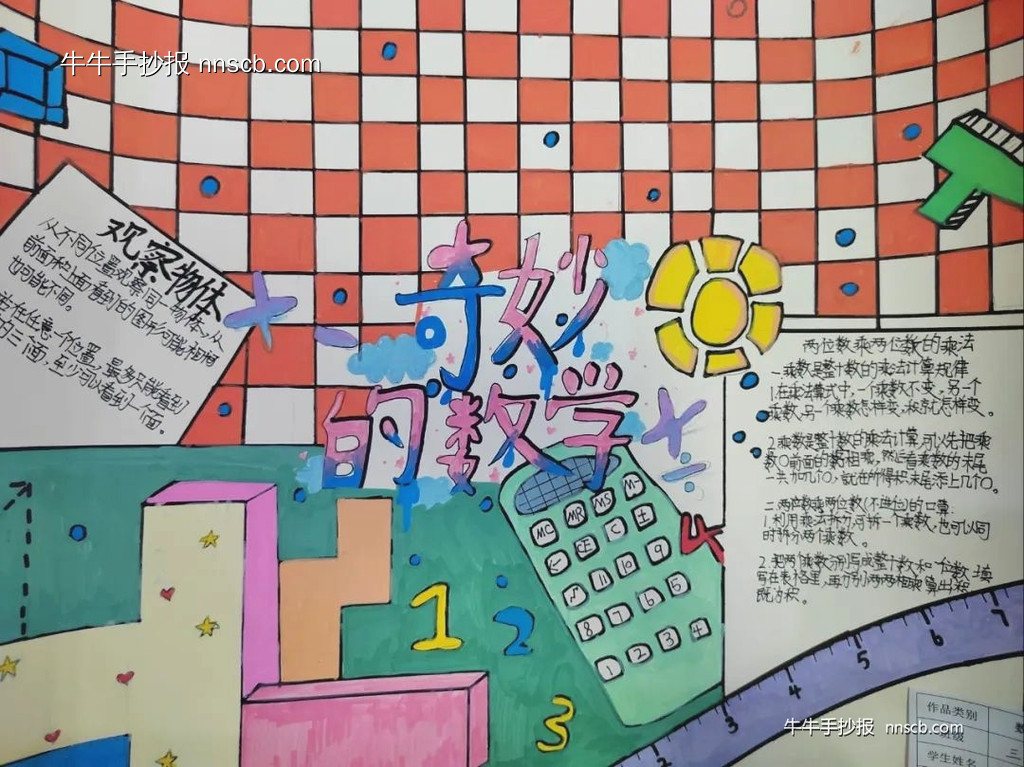 牛牛手抄报 nnscb.com
观察物体
从不同位置观察同一物体,从
前面和上面看到的图形可能相同
也可能不同。
若在任意一个位置,最多只能看到
的三面,至少可以看到一个面。
奇妙
的数学
两位数乘两位数的乘法
一乘数是整十数的乘法计算规律
1.在乘法算式中,一个乘数不变,另一个
乘数,另一个乘数怎样变,积就怎样变。
2.乘数是整十数的乘法计算,可以先把乘
数0前面的数相乘,然后看乘数的末尾
一共加几个0,就在所得积末尾添上几个0。
二.两位数乘两位数(不进位)的口算:
1.利用乘法拆分,可拆一个乘数,也可以同
时拆分两个乘数。
2.把两个乘数分别写成整十数和一位数,填
写在表格里,再分别两两相乘,算出积
既为积。
MC MR MS M-
CE C ±
11 10 9
8 7 6 5
1 2 3 4
4
1
2
3
2 3 4 5 6 7
作品类别 数
班级 三
学生姓名
牛牛手抄报 nnscb.com